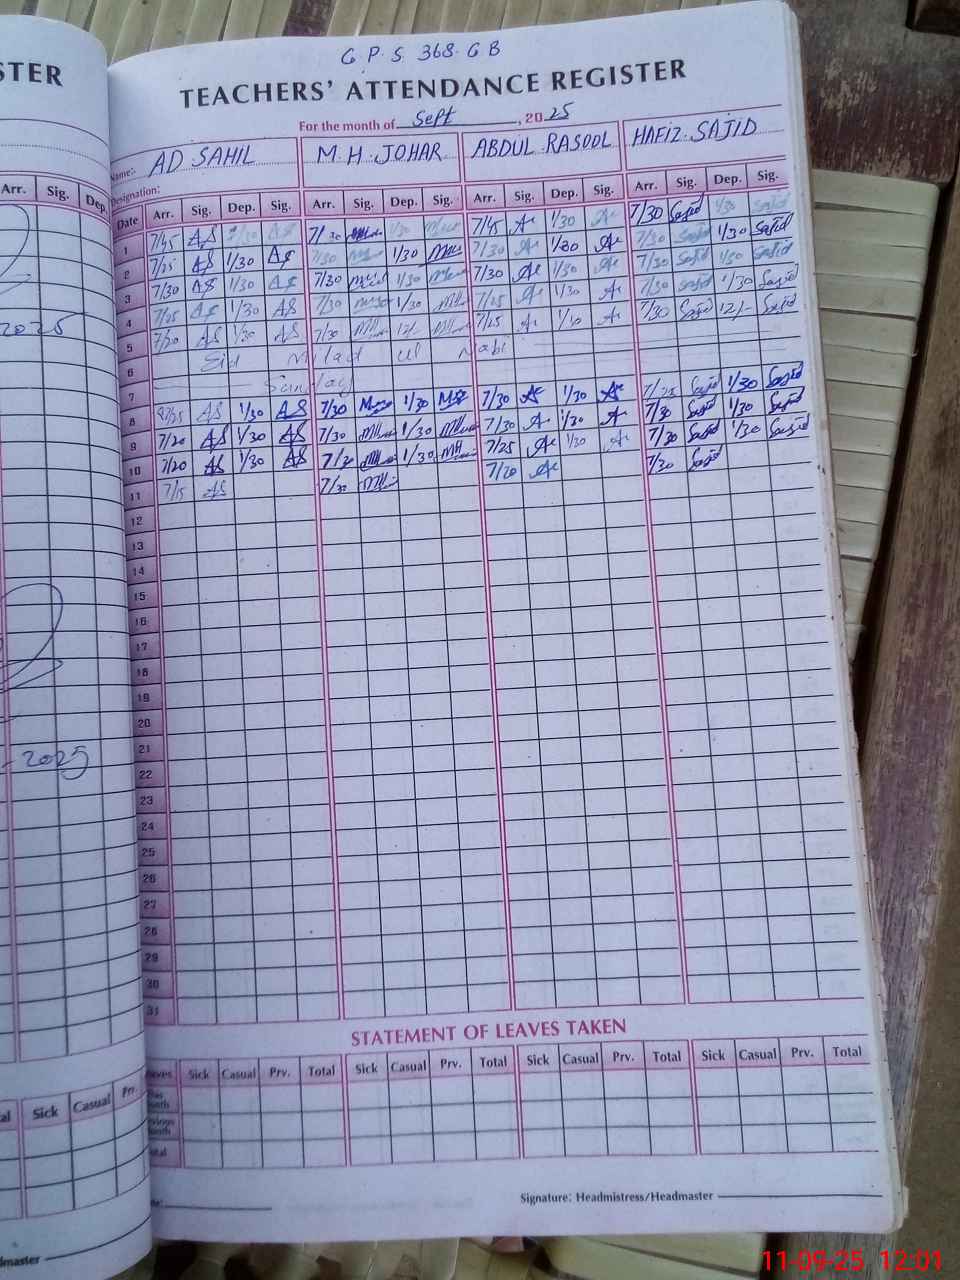 STER
G.P.S. 368.GB
TEACHERS' ATTENDANCE REGISTER
For the month of Sept, 2025
Name:- AD SAHIL M.H. JOHAR ABDUL RASOOL HAFIZ SAJID
Designation:
Arr. Sig. Dep. Date Arr. Sig. Dep. Sig. Arr. Sig. Dep. Sig. Arr. Sig. Dep. Sig. Arr. Sig. Dep. Sig.
1 7/45 AS 1/30 AS 7/30 1/30 7/45 A 1/30 A 7/30 Sajid 1/30 Sajid
2 7/25 AS 1/30 AS 7/30 1/30 7/30 A 1/30 A 7/30 Sajid 1/30 Sajid
3 7/30 AS 1/30 AS 7/30 1/30 7/30 A 1/30 A 7/30 Sajid 1/30 Sajid
4 7/25 AS 1/30 AS 7/30 1/30 7/25 A 1/30 A 7/30 Sajid 1/30 Sajid
5 7/20 AS 1/30 AS 7/30 12/- 7/25 A 1/30 A 7/30 Sajid 12/- Sajid
6 Eid Milad ul Nabi
7 Sunday
8 AS 1/30 AS 7/30 1/30 7/30 A 1/30 A 7/25 Sajid 1/30 Sajid
9 7/20 AS 1/30 AS 7/30 1/30 7/30 A 1/30 A 7/30 Sajid 1/30 Sajid
10 7/20 AS 1/30 AS 7/30 1/30 7/25 A 1/30 A 7/30 Sajid 1/30 Sajid
11 7/15 AS 7/30 7/20 A 7/30 Sajid
12
13
14
15
16
17
18
19
20
21
2025
22
23
24
25
26
27
28
29
30
31
STATEMENT OF LEAVES TAKEN
Sick Casual Prv. Total Sick Casual Prv. Total Sick Casual Prv. Total Sick Casual Prv. Total
Sick Casual
Signature: Headmistress/Headmaster
11-09-25 12:01